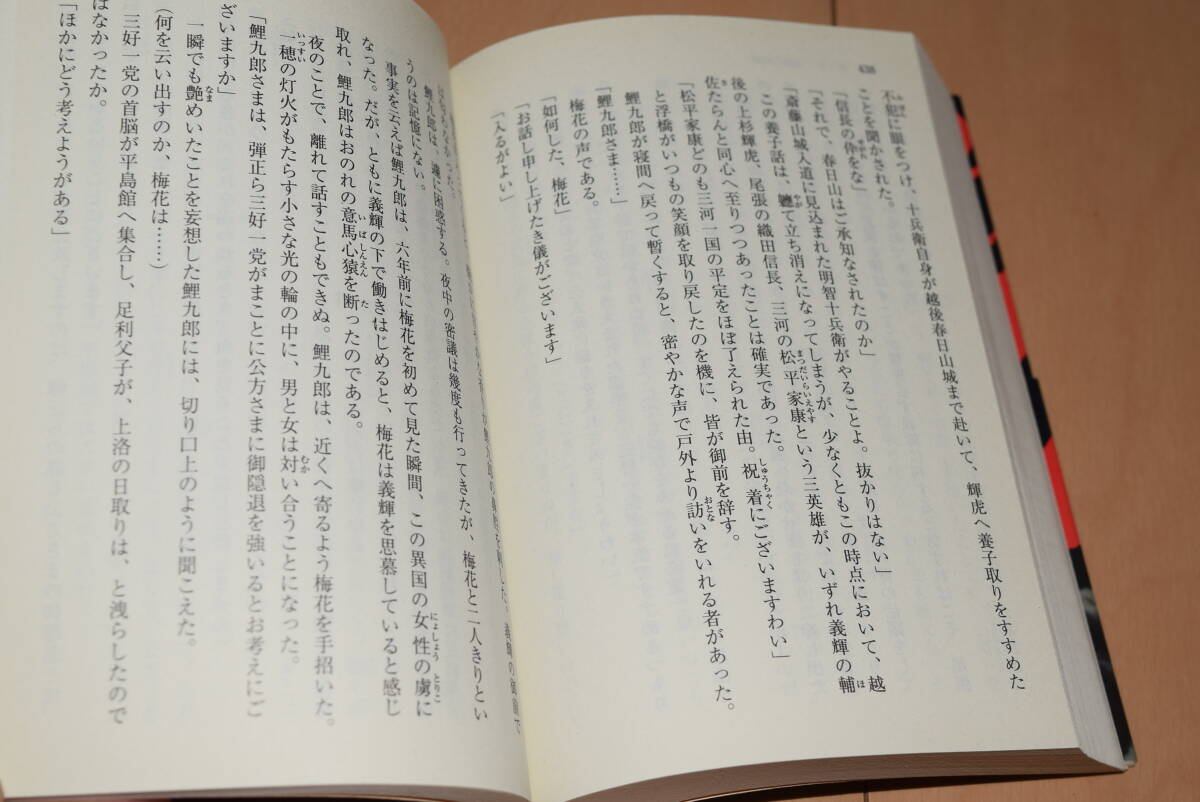 438
不犯に眼をつけ、十兵衛自身が越後春日山城まで赴いて、輝虎へ養子取りをすすめた
ことを聞かされた。
「信長の伜をな」
「それで、春日山はご承知なされたのか」
「斎藤山城入道に見込まれた明智十兵衛がやることよ。抜かりはない」
この養子話は、軈て立ち消えになってしまうが、少なくともこの時点において、越
後の上杉輝虎、尾張の織田信長、三河の松平家康という三英雄が、いずれ義輝の輔
佐たらんと同心へ至りつつあったことは確実であった。
「松平家康どのも三河一国の平定をほぼ了えられた由。祝着にございますわい」
と浮橋がいつもの笑顔を取り戻したのを機に、皆が御前を辞す。
鯉九郎が寝間へ戻って暫くすると、密やかな声で戸外より訪いをいれる者があった。
「鯉九郎さま……」
梅花の声である。
「如何した、梅花」
「お話し申し上げたき儀がございます」
「入るがよい」
鯉九郎は、遽に困惑する。夜中の密議は幾度も行ってきたが、梅花と二人きりとい
うのは記憶にない。
事実を云えば鯉九郎は、六年前に梅花を初めて見た瞬間、この異国の女性の虜に
なった。だが、ともに義輝の下で働きはじめると、梅花は義輝を思慕していると感じ
取れ、鯉九郎はおのれの意馬心猿を断ったのである。
夜のことで、離れて話すこともできぬ。鯉九郎は、近くへ寄るよう梅花を手招いた。
一穂の灯火がもたらす小さな光の輪の中に、男と女は対い合うことになった。
「鯉九郎さまは、弾正ら三好一党がまことに公方さまに御隠退を強いるとお考えにご
ざいますか」
一瞬でも艶めいたことを妄想した鯉九郎には、切り口上のように聞こえた。
(何を云い出すのか、梅花は……)
三好一党の首脳が平島館へ集合し、足利父子が、上洛の日取りは、と洩らしたので
はなかったか。
「ほかにどう考えようがある」